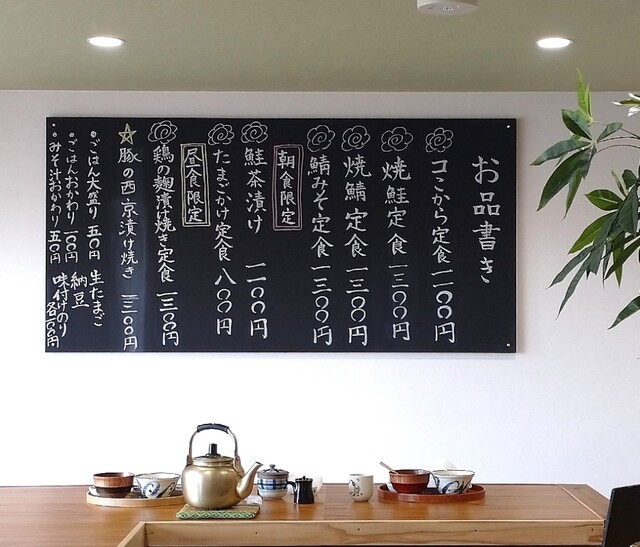 お品書き
ココから定食 一一〇〇円
焼鮭定食 一三〇〇円
焼鯖定食 一三〇〇円
鯖みそ定食 一三〇〇円
朝食限定
鮭茶漬け 一一〇〇円
たまごかけ定食 八〇〇円
昼食限定
鶏の麹漬け焼き定食 一三〇〇円
豚の西京漬け焼き 一三〇〇円
ごはん大盛り 五〇円
ごはんおかわり 一〇〇円
みそ汁おかわり 五〇円
生たまご
納豆
味付けのり 各一〇〇円